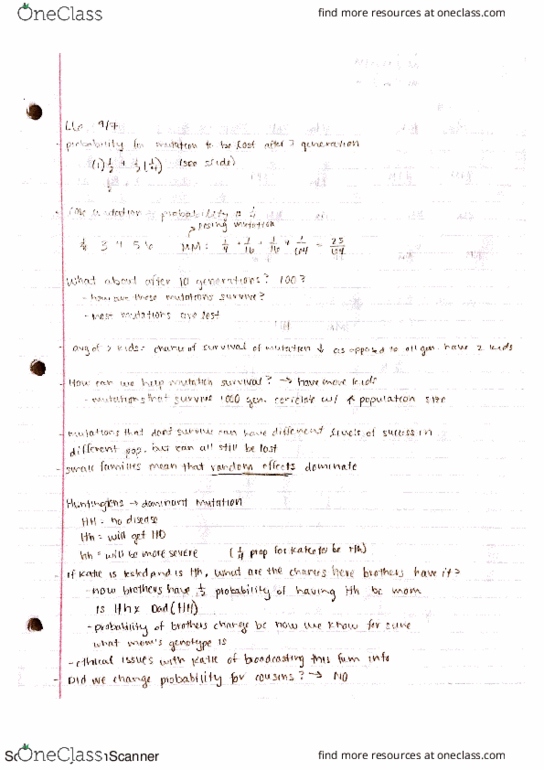 OneClass
find more resources at oneclass.com
9/7
probability for mutation to be lost after 2 generation
(1) 1/2 + 1/2 (1/4) (see slide)
mutation probability is
losing mutation
MM: 1/4 + 1/16 + 1/16 + 1/64 = 25/64
What about after 10 generations? 100?
- how are these mutations survive?
- these mutations are lost
- avg of 2 kids: chance of survival of mutation ↓ as opposed to all gen. have 2 kids
- How can we help mutation survival? → have more kids
- mutations that survive 1000 gen. correlate w/ ↑ population size
- mutations that don't survive can have different levels of success in
different pop. but can all still be lost
- small families mean that random effects dominate
Huntingtons → dominant mutation
HH = no disease
Hh = will get HD
hh = will be more severe (1/4 prop for Katie to be Hh)
- If Katie is tested and is Hh, what are the chances here brothers have it?
- now brothers have 1/2 probability of having Hh bc mom
is Hh x Dad (HH)
- probability of brothers change bc now we know for sure
what mom's genotype is
- ethical issues with Katie of broadcasting this fam info
- Did we change probability for cousins? → NO
OneClass
Scanner
find more resources at oneclass.com